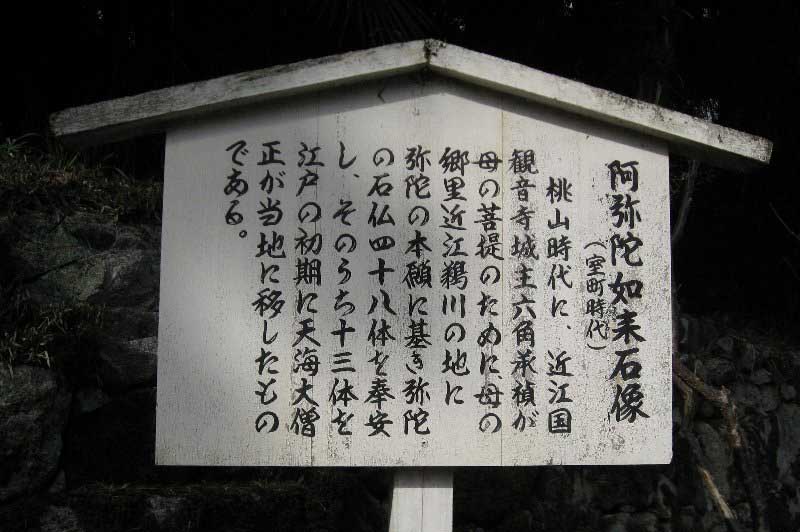 阿弥陀如来石像
（室町時代）
桃山時代に、近江国
観音寺城主六角承禎が
母の菩提のために、母の
郷里近江鵜川の地に
弥陀の本願に基き弥陀
の石仏四十八体を奉安
し、そのうち十三体を
江戸の初期に天海大僧
正が当地に移したもの
である。